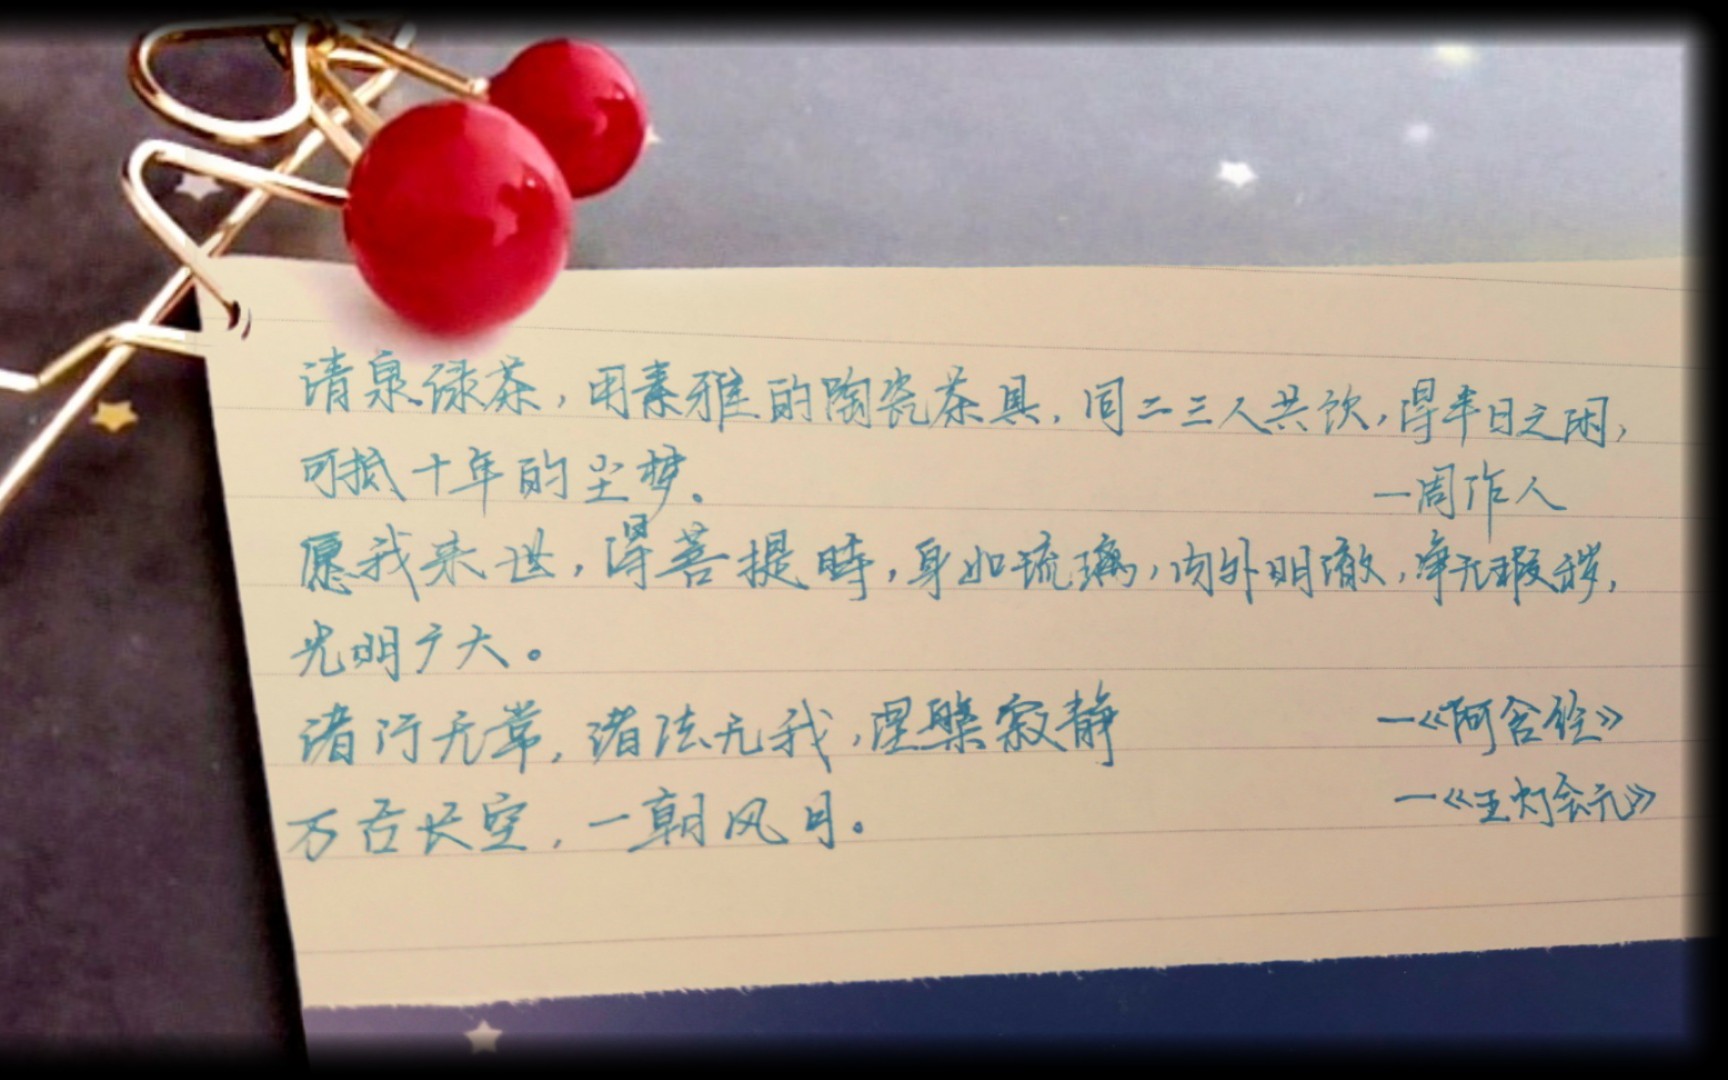 清泉绿茶，用素雅的陶瓷茶具，同二三人共饮，得半日之闲，
可抵十年的尘梦。 —周作人
愿我来世，得菩提时，身如琉璃，内外明澈，净无瑕秽，
光明广大。
诸行无常，诸法无我，涅槃寂静 —《阿含经》
万古长空，一朝风月。 —《五灯会元》